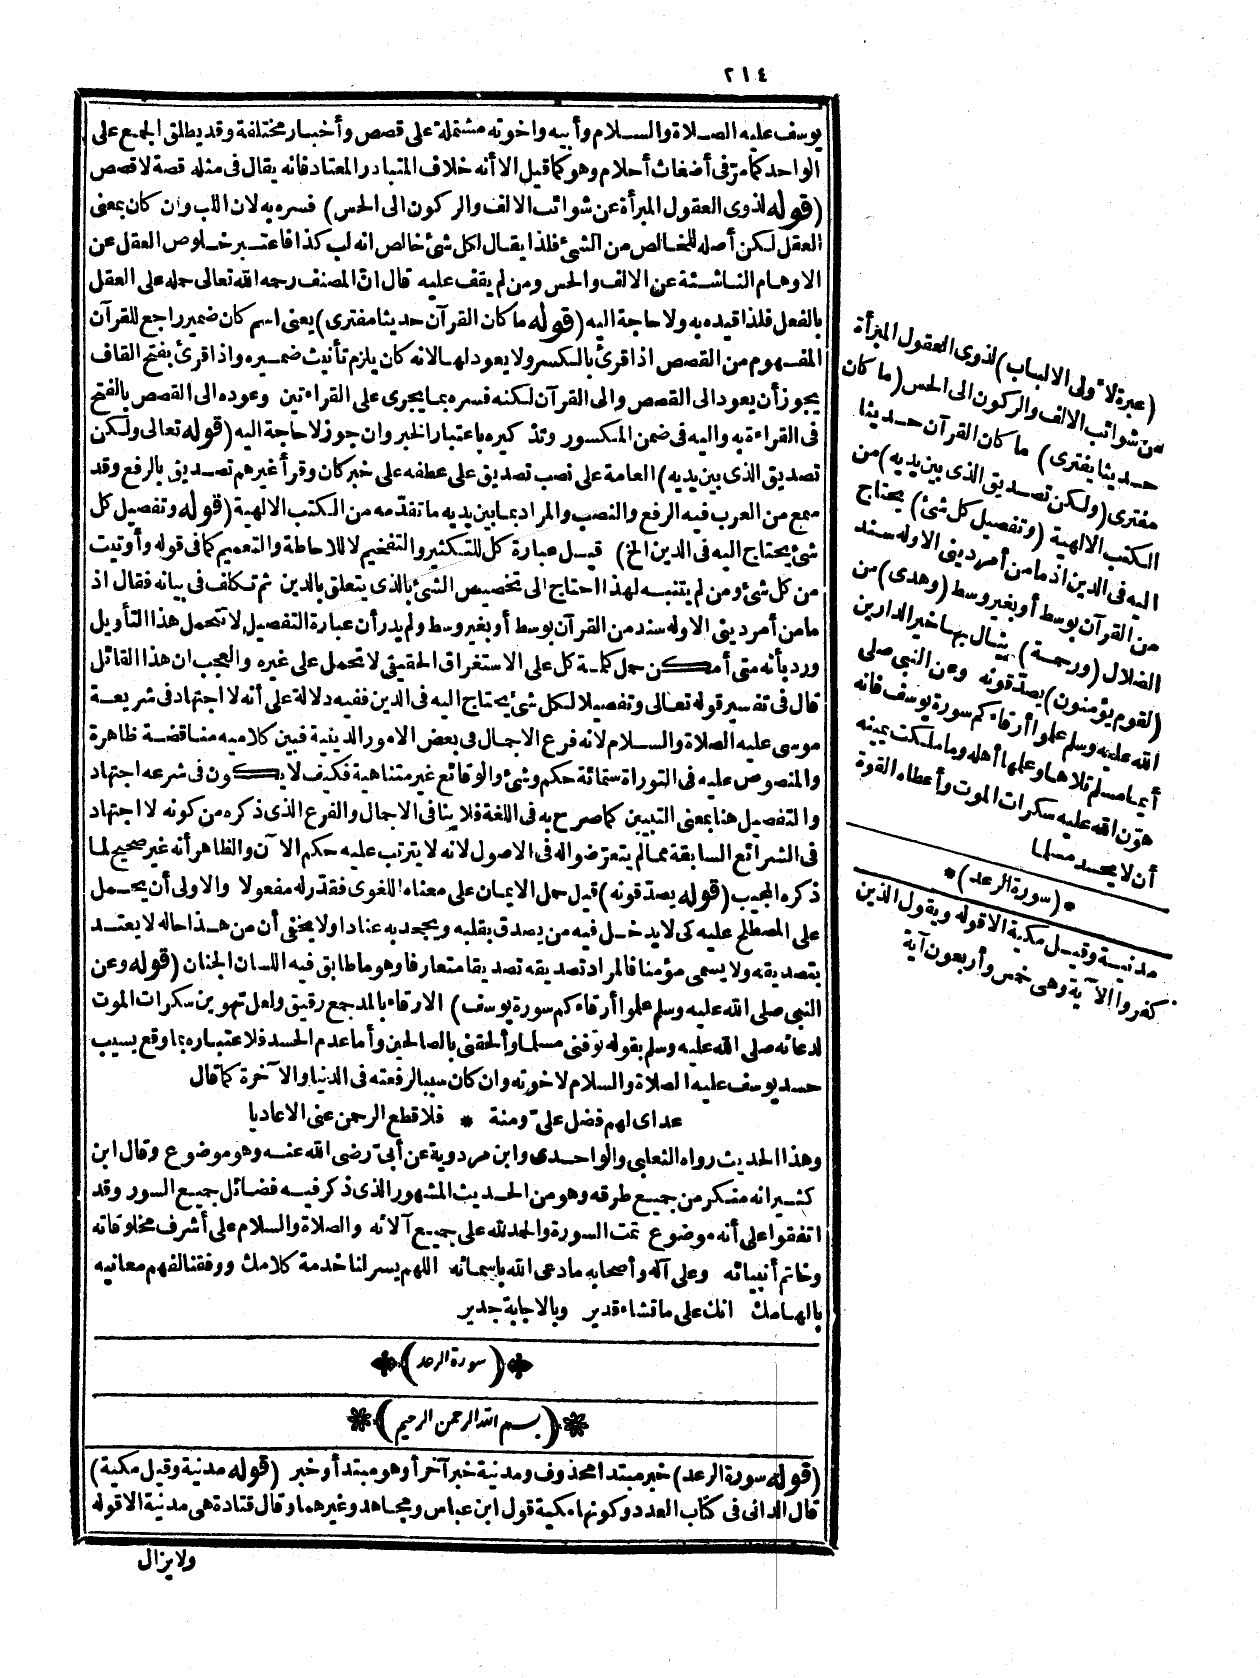 ٢١٤
يوسف عليه الصلاة والسلام وأبيه واخوته مشتملة على قصص وأخبار مختلفة وقد يطلق الجمع على
الواحد كما مرّ في أضغاث أحلام وهو كما قيل الا أنه خلاف المتبادر المعتاد فانه يقال في مثله قصة لا قصص
(قوله لذوى العقول المبرأة عن شوائب الالف والركون الى الحس) فسره به لان اللب وان كان بمعنى
العقل لكن أصله للخالص من الشئ فلذا يقال لكل شئ خالص انه لب كذا فاعتبر خلوص العقل عن
الاوهام الناشئة عن الالف والحس ومن لم يقف عليه قال انّ المصنف رحمه الله تعالى حمله على العقل
بالفعل فلذا قيده به ولا حاجة اليه (قوله ما كان القرآن حديثا مفترى) يعنى اسم كان ضمير راجع للقرآن
المفهوم من القصص اذا قرئ بالكسر ولا يعود لها لانه كان يلزم تأنيث ضميره واذا قرئ بفتح القاف
يجوز أن يعود الى القصص والى القرآن لكنه فسره بما يجرى على القراءتين وعوده الى القصص بالفتح
في القراءة به واليه في ضمن المكسور وتذكيره باعتبار الخبر وان جوز لا حاجة اليه (قوله تعالى ولكن
تصديق الذى بين يديه) العامة على نصب تصديق على عطفه على خبر كان وقرأ غيرهم تصديق بالرفع وقد
سمع من العرب فيه الرفع والنصب والمراد بما بين يديه ما تقدّمه من الكتب الالهية (قوله وتفصيل كل
شئ يحتاج اليه في الدين الخ) قيل عبارة كل للتكثير والتفخيم لا للاحاطة والتعميم كما في قوله وأوتيت
من كل شئ ومن لم يتنبه لهذا احتاج الى تخصيص الشئ بالذى يتعلق بالدين ثم تكلف في بيانه فقال اذ
ما من أمر دينى الا وله سند من القرآن بوسط أو بغير وسط ولم يدر أن عبارة التفصيل لا تحمل هذا التأويل
ورد بأنه متى أمكن حمل كلمة كل على الاستغراق الحقيقى لا تحمل على غيره والعجب ان هذا القائل
قال في تفسير قوله تعالى وتفصيلا لكل شئ يحتاج اليه في الدين ففيه دلالة على أنه لا اجتهاد في شريعة
موسى عليه الصلاة والسلام لانه فرع الاجمال في بعض الامور الدينية فبين كلاميه مناقضة ظاهرة
والمنصوص عليه في التوراة ستمائة حكم وشئ والوقائع غير متناهية فكيف لا يكون في شرعه اجتهاد
والتفصيل هنا بمعنى التبيين كما صرح به في اللغة فلا ينافى الاجمال والفرع الذى ذكره من كونه لا اجتهاد
في الشرائع السابقة مما لم يتعرّضوا له في الاصول لانه لا يترتب عليه حكم الآن والظاهر أنه غير صحيح لما
ذكره المجيب (قوله يصدّقونه) قيل حمل الايمان على معناه اللغوى فقدر له مفعولا والاولى أن يحمل
على المصطلح عليه كى لا يدخل فيه من يصدق بقلبه ويجحد به عنادا ولا يخفى أن من هذا حاله لا يعتد
بتصديقه ولا يسمى مؤمنا فالمراد تصديقه تصديقا متعارفا وهو ما طابق فيه اللسان الجنان (قوله وعن
النبي صلى الله عليه وسلم علموا أرقاءكم سورة يوسف) الارقاء بالمد جمع رقيق ولعل تهوين سكرات الموت
لدعائه صلى الله عليه وسلم بقوله توفنى مسلما وألحقنى بالصالحين وأما عدم الحسد فلاعتباره بما وقع بسبب
حسد يوسف عليه الصلاة والسلام لاخوته وان كان سببا لرفعته في الدنيا والآخرة كما قال
عداى لهم فضل علىّ ومنة * فلا قطع الرحمن عنى الاعاديا
وهذا الحديث رواه الثعلبى والواحدى وابن مردوية عن أبىّ رضى الله عنه وهو موضوع وقال ابن
كثير انه منكر من جميع طرقه وهو من الحديث المشهور الذى ذكر فيه فضائل جميع السور وقد
اتفقوا على أنه موضوع تمت السورة والحمد لله على جميع آلائه والصلاة والسلام على أشرف مخلوقاته
وخاتم أنبيائه وعلى آله وأصحابه ما دعى الله باسمائه اللهم يسر لنا خدمة كلامك ووفقنا لفهم معانيه
بالهامك انك على ما تشاء قدير وبالاجابة جدير
(سورة الرعد)
(بسم الله الرحمن الرحيم)
(قوله سورة الرعد) خبر مبتدا محذوف ومدنية خبر آخر أو هو مبتدأ وخبر (قوله مدنية وقيل مكية)
قال الدانى في كتاب العدد وكونها مكية قول ابن عباس ومجاهد وغيرهما وقال قتادة هى مدنية الا قوله
ولا يزال
(عبرة لاولى الالباب) لذوى العقول المبرأة
من شوائب الالف والركون الى الحس (ما كان
حديثا يفترى) ما كان القرآن حديثا
مفترى (ولكن تصديق الذى بين يديه) من
الكتب الالهية (وتفصيل كل شئ) يحتاج
اليه في الدين اذ ما من أمر دينى الا وله سند
من القرآن بوسط أو بغير وسط (وهدى) من
الضلال (ورحمة) ينال بها خير الدارين
(لقوم يؤمنون) يصدّقونه وعن النبي صلى
الله عليه وسلم علموا أرقاءكم سورة يوسف فانه
أيما مسلم تلاها وعلمها أهله وما ملكت يمينه
هوّن الله عليه سكرات الموت وأعطاه القوة
أن لا يحسد مسلما
* (سورة الرعد) *
مدنية وقيل مكية الا قوله ويقول الذين
كفروا الآية وهى خمس وأربعون آية